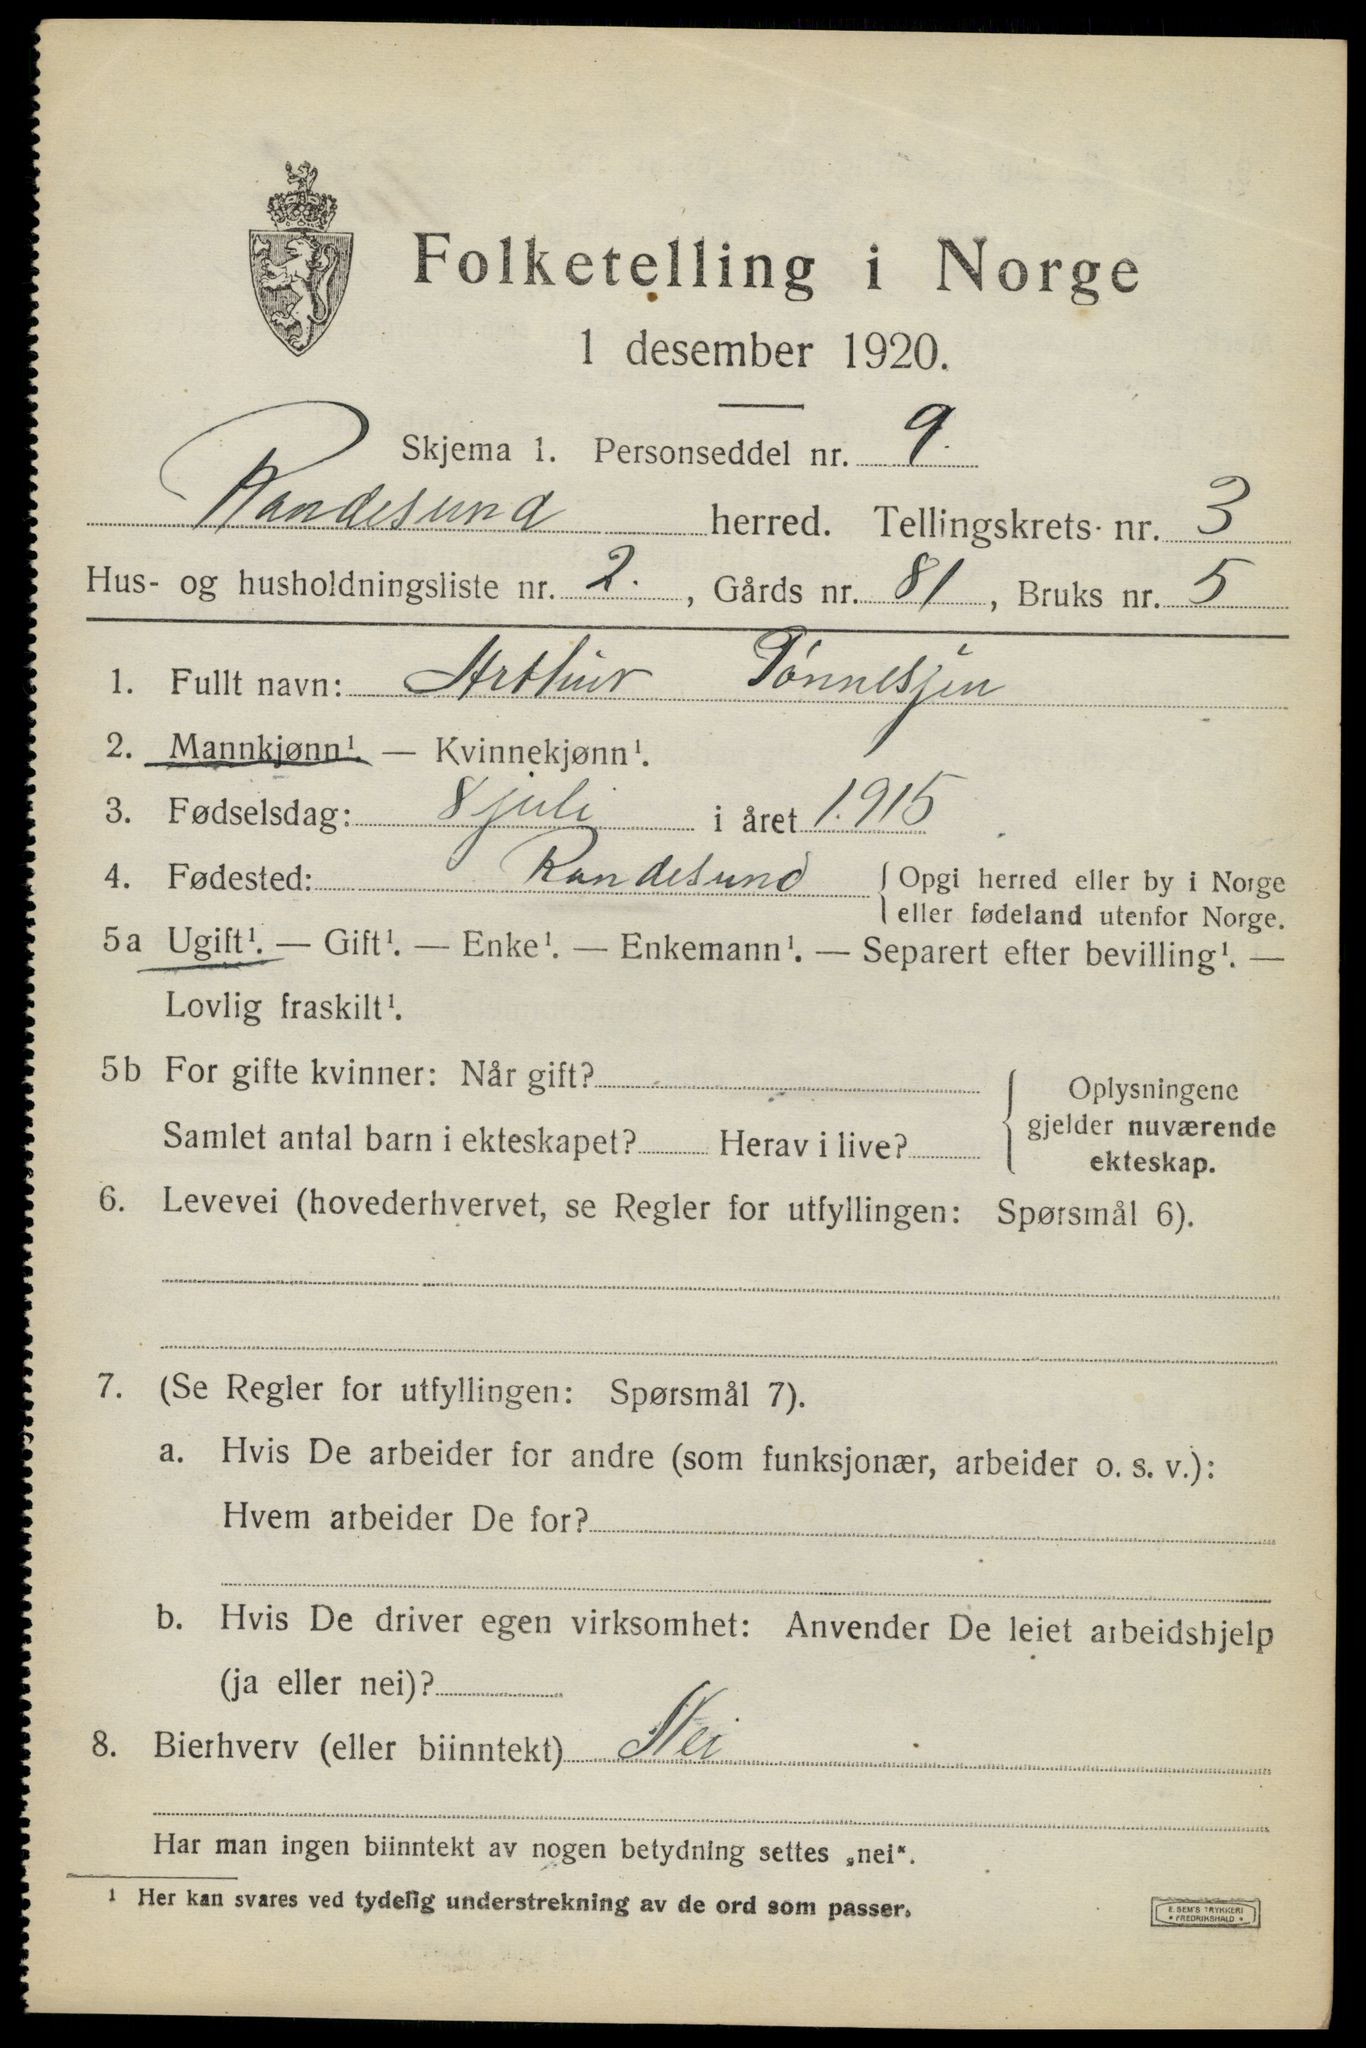 Folketelling i Norge
1 desember 1920.
Skjema 1. Personseddel nr. 9.
Randesund herred. Tellingskrets nr. 3
Hus- og husholdningsliste nr. 2. , Gårds nr. 81 , Bruks nr. 5
1. Fullt navn: Arthur Tönnesjen
2. Mannkjønn¹. — Kvinnekjønn¹.
3. Fødselsdag: 8 juli i året 1915
4. Fødested: Randesund { Opgi herred eller by i Norge
eller fødeland utenfor Norge.
5a Ugift¹. — Gift¹. — Enke¹. — Enkemann¹. — Separert efter bevilling¹. —
Lovlig fraskilt¹.
5b For gifte kvinner: Når gift?
Samlet antal barn i ekteskapet? Herav i live?
Oplysningene
gjelder nuværende
ekteskap.
6. Levevei (hovederhvervet, se Regler for utfyllingen: Spørsmål 6).
7. (Se Regler for utfyllingen: Spørsmål 7).
a. Hvis De arbeider for andre (som funksjonær, arbeider o. s. v.):
Hvem arbeider De for?
b. Hvis De driver egen virksomhet: Anvender De leiet arbeidshjelp
(ja eller nei)?
8. Bierhverv (eller biinntekt) Nei
Har man ingen biinntekt av nogen betydning settes „nei".
¹ Her kan svares ved tydelig understrekning av de ord som passer.
E. SEM'S TRYKKERI
* FREDRIKSHALD *